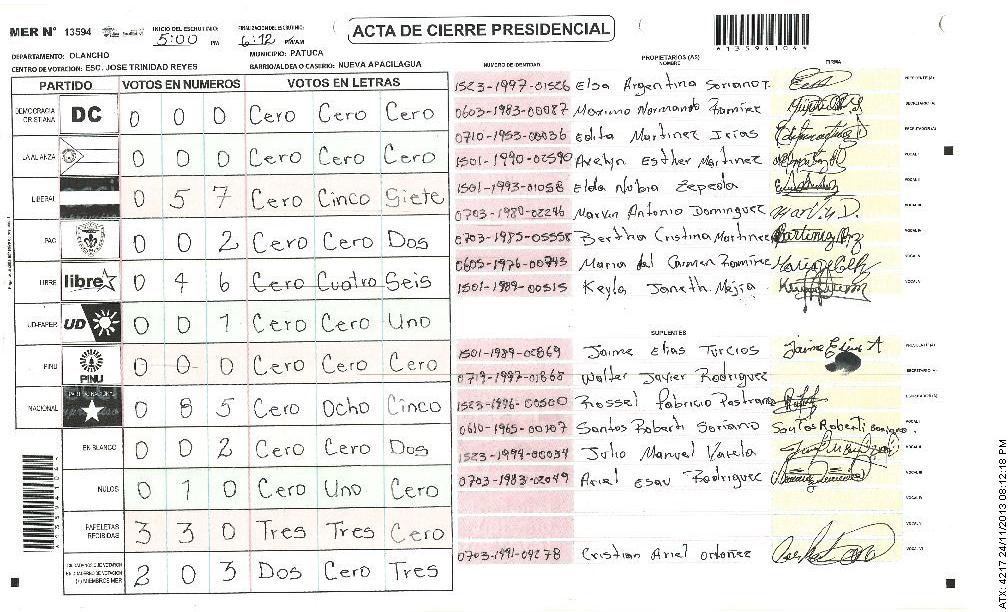 MER N° 13594 INICIO DEL ESCRUTINIO: 5:00 PM FINALIZACION DEL ESCRUTINIO: 6:12 PM/AM
ACTA DE CIERRE PRESIDENCIAL
DEPARTAMENTO: OLANCHO MUNICIPIO: PATUCA
CENTRO DE VOTACION: ESC. JOSE TRINIDAD REYES BARRIO/ALDEA O CASERIO: NUEVA APACILAGUA
PARTIDO VOTOS EN NUMEROS VOTOS EN LETRAS
DEMOCRACIA CRISTIANA DC 0 0 0 Cero Cero Cero
LA ALIANZA 0 0 0 Cero Cero Cero
LIBERAL 0 5 7 Cero Cinco Siete
PAC 0 0 2 Cero Cero Dos
LIBRE libre 0 4 6 Cero Cuatro Seis
UD-FAPER UD 0 0 1 Cero Cero Uno
PINU PINU 0 0 0 Cero Cero Cero
NACIONAL 0 8 5 Cero Ocho Cinco
EN BLANCO 0 0 2 Cero Cero Dos
NULOS 0 1 0 Cero Uno Cero
PAPELETAS RECIBIDAS 3 3 0 Tres Tres Cero
MIEMBROS MER 2 0 3 Dos Cero Tres
NUMERO DE IDENTIDAD PROPIETARIOS (AS) NOMBRE FIRMA
1523-1997-01526 Elsa Argentina Soriano T.
0603-1983-00087 Maximo Normando Ramirez
0710-1953-00036 Edita Martinez Irias
1501-1990-02590 Avelyn Esther Martinez
1501-1993-01058 Elda Nubia Zepeda
0703-1980-02246 Marvin Antonio Dominguez
0703-1985-05558 Bertha Cristina Martinez
0605-1976-00743 Maria del Carmen Ramirez
1501-1989-00515 Keyla Janeth Mejia
SUPLENTES
1501-1989-02869 Jaime Elias Turcios
0719-1997-01868 Walter Javier Rodriguez
1523-1996-00500 Rossel Fabricio Pastrana
0610-1965-00107 Santos Roberti Soriano Santos Roberti
1523-1994-00034 Julio Manuel Varela
0703-1983-02049 Ariel Esau Rodriguez
0703-1991-04278 Cristian Ariel Ordoñez
ATX: 4217 24/11/2013 08:12:18 PM